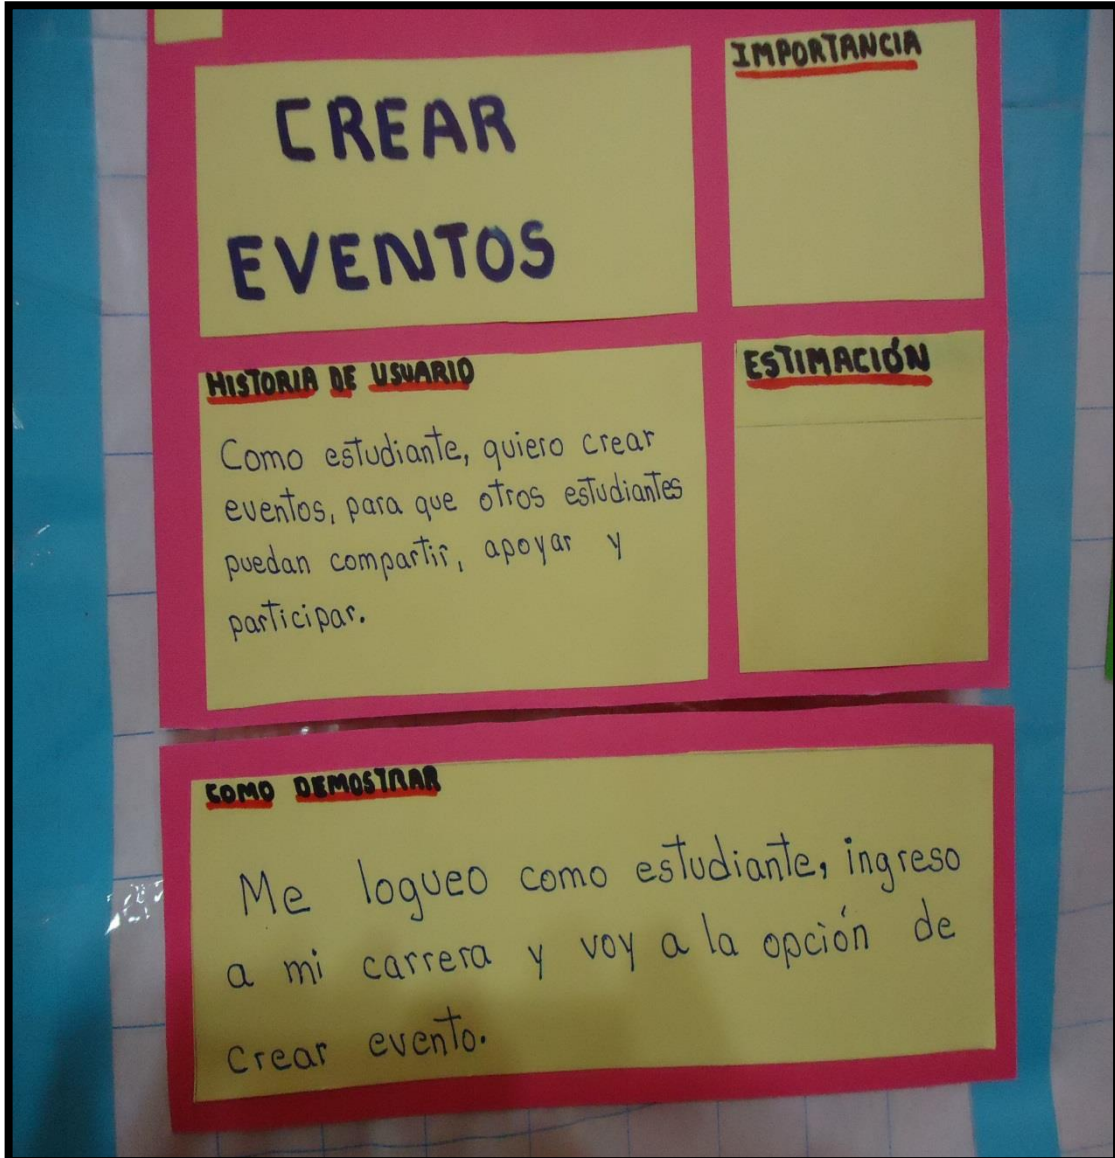 CREAR
EVENTOS
IMPORTANCIA
HISTORIA DE USUARIO
Como estudiante, quiero crear
eventos, para que otros estudiantes
puedan compartir, apoyar y
participar.
ESTIMACIÓN
COMO DEMOSTRAR
Me logueo como estudiante, ingreso
a mi carrera y voy a la opción de
crear evento.